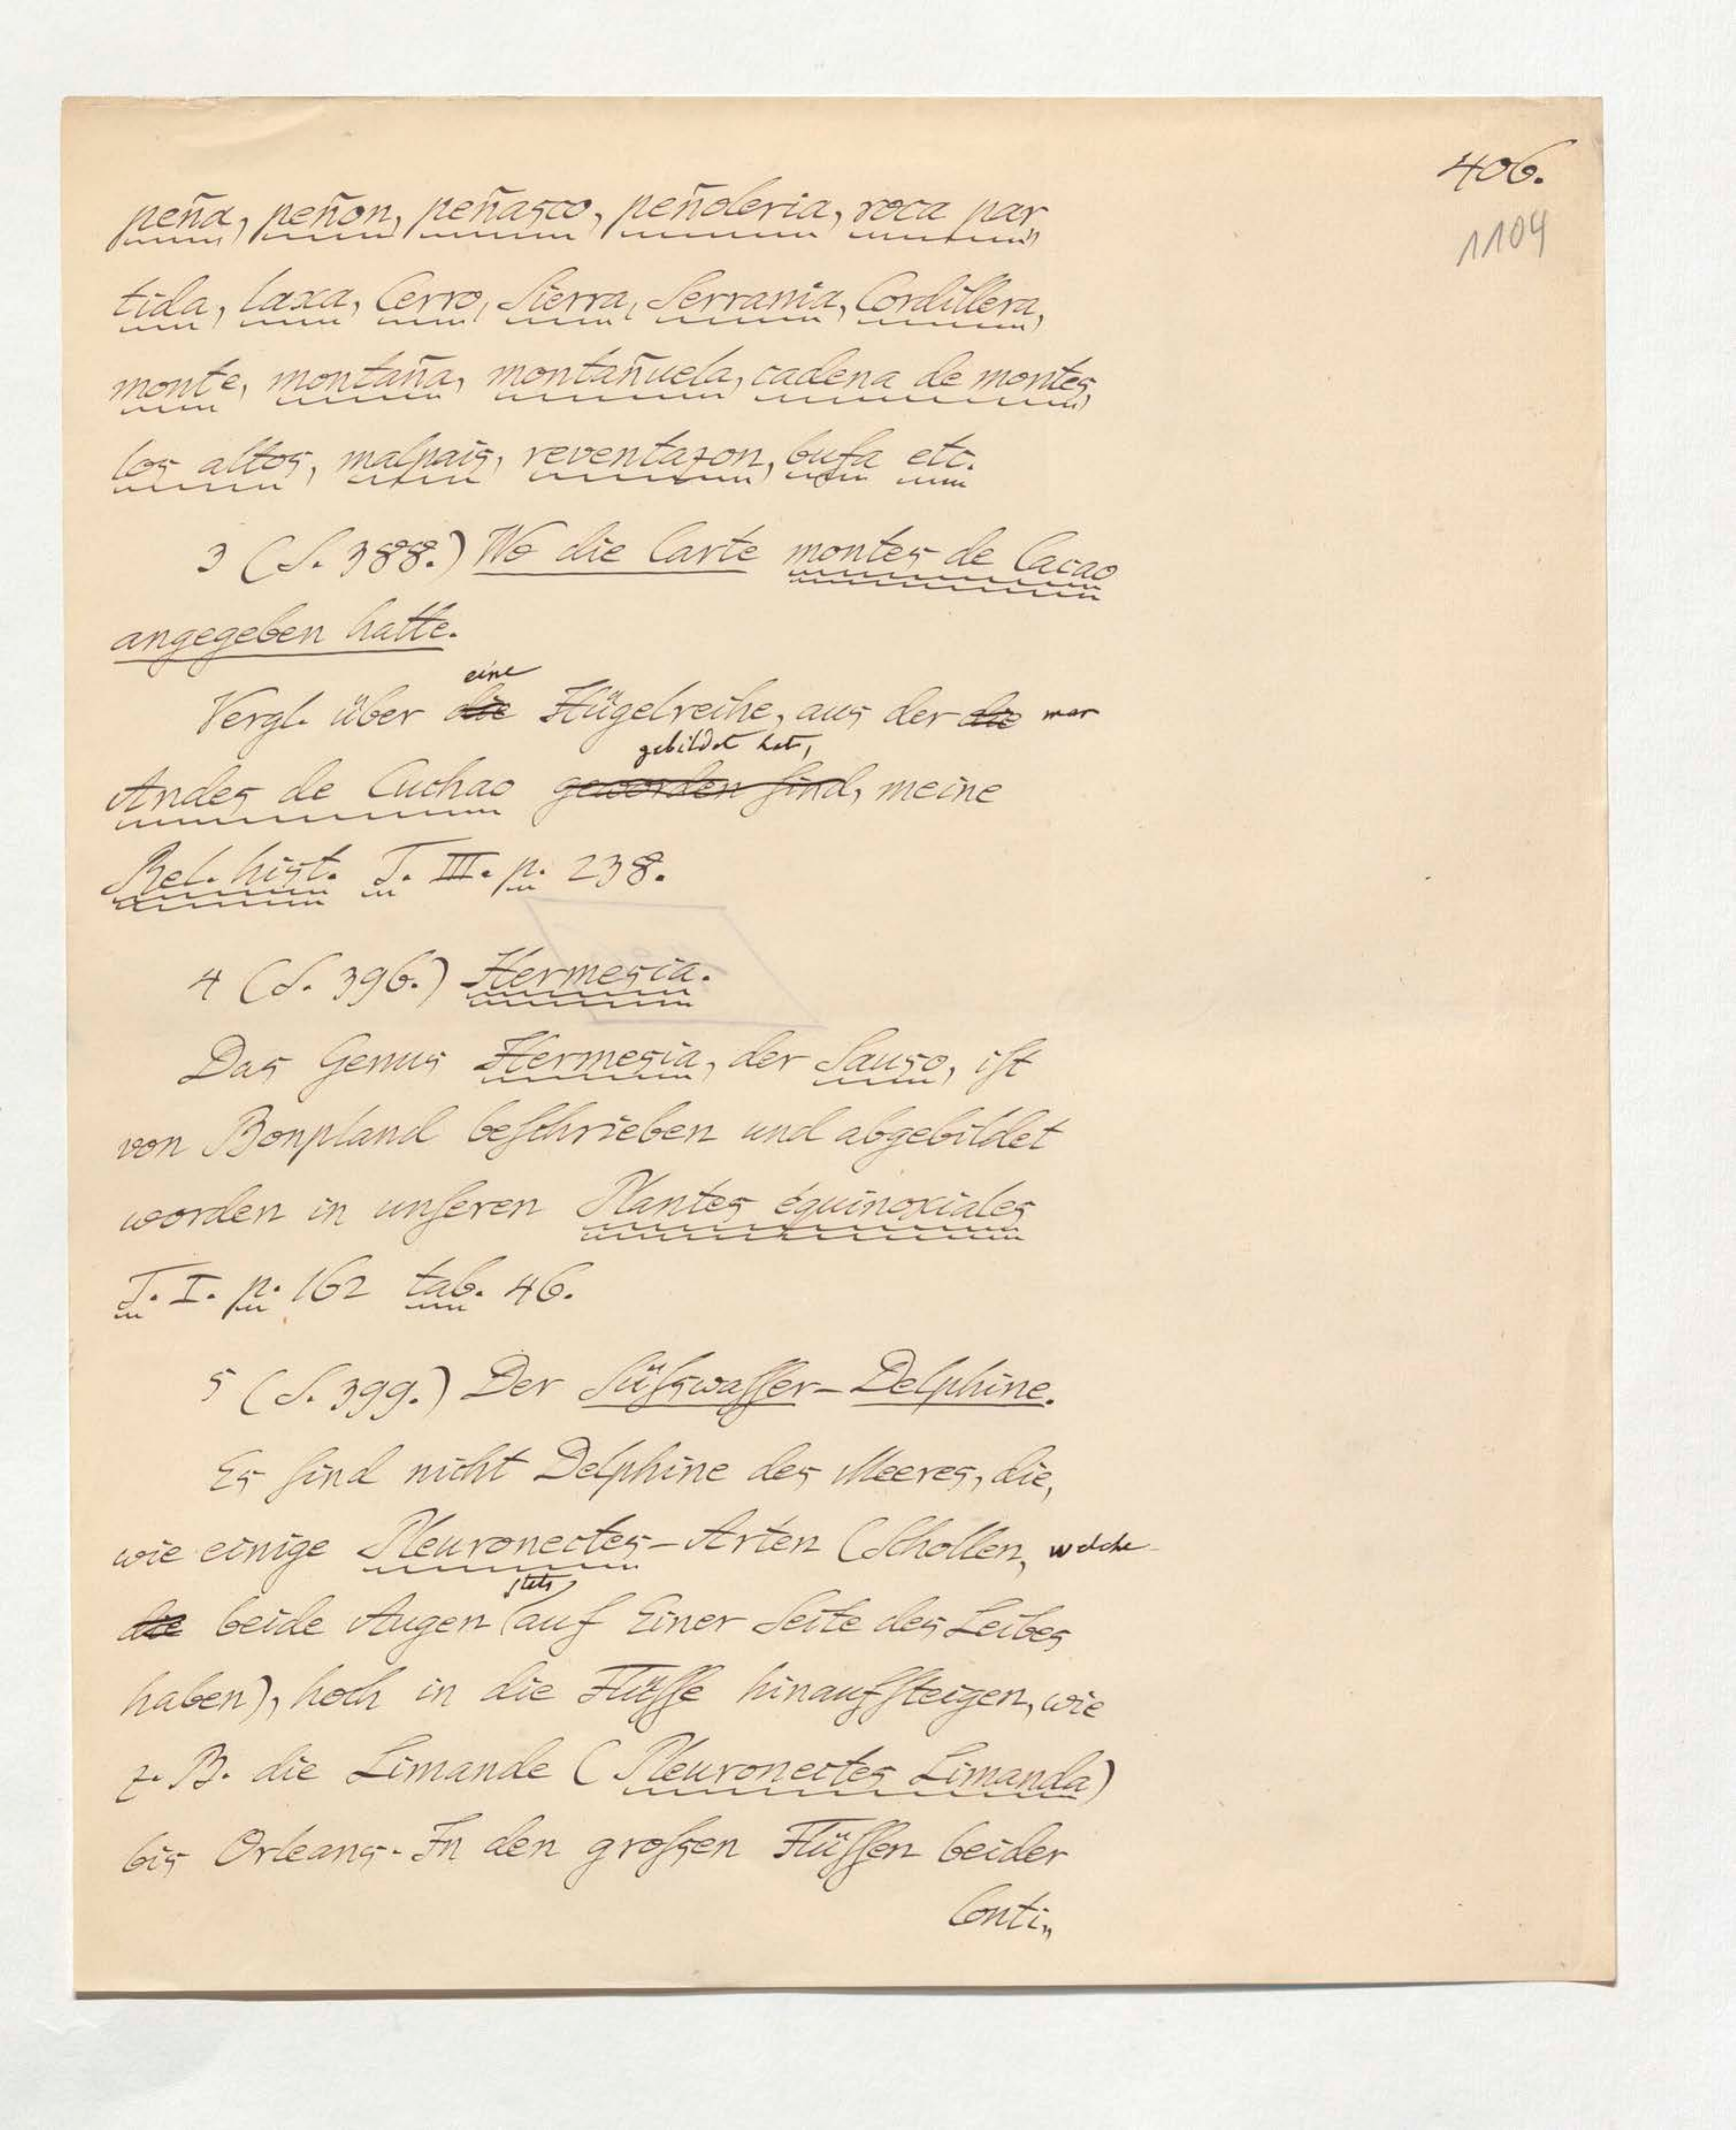 406.
1104
peña, peñon, peñasco, peñoleria, roca par„
tida, laxa, Cerro, Sierra, Serrania, Cordillera,
monte, montaña, montañuela, cadena de montes,
los altos, malpais, reventazon, bufa etc.
3 (S. 388.) Wo die Carte montes de Cacao
angegeben hatte.
eine
Vergl. über die Hügelreihe, aus der die man
gebildet hat,
Andes de Cuchao geworden sind, meine
Rel. hist. T. III. p. 238.
4 (S. 396.) Hermesia.
Das Genus Hermesia, der Sauso, ist
von Bonpland beschrieben und abgebildet
worden in unseren Plantes équinoxiales
T. I. p. 162 tab. 46.
5 (S. 399.) Der Süßwasser-Delphine.
Es sind nicht Delphine des Meeres, die,
wie einige Pleuronectes-Arten (Schollen, welche
stets
die beide Augen auf Einer Seite des Leibes
haben), hoch in die Flüsse hinaufsteigen, wie
z. B. die Limande (Pleuronectes Limanda)
bis Orleans. In den großen Flüssen beider
Conti„